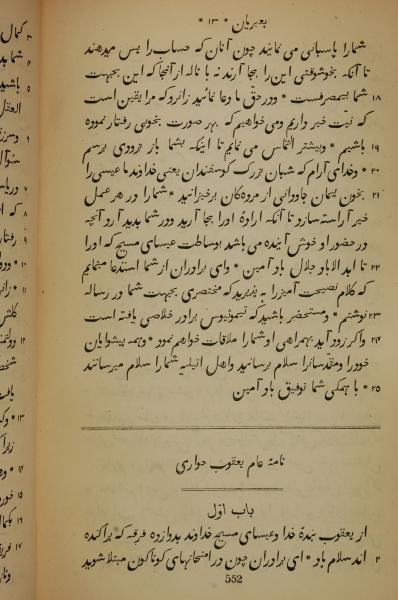 بعبریان * ۱۳ *
شمارا پاسبانی می نمایند چون آنان که حساب را پس میدهند
تا آنکه بخوشوقتی این را بجا آرند نه با ناله از آنجا که این بجهت
۱۸ شما بیمصرفست * ودر حق ما دعا نمائید زانرو که مرا یقین است
که نیت خیر داریم ومی خواهیم که بهر صورت بخوبی رفتار نموده
۱۹ باشیم * وبیشتر التماس می نمایم تا اینکه بشما باز بزودی برسم
۲۰ * وخدای آرام که شبان بزرک کوسفندان یعنی خداوند ما عیسی را
۲۱ بخون پیمان جاودانی از مردهکان برخیزانید * شمارا در هر عمل
خیر آراسته سازد تا آنکه ارادهٔ اورا بجا آرید ودر شما پدید آرد آنچه
در حضور او خوش آینده می باشد بوساطت عیسای مسیح که اورا
۲۲ تا ابد الاباد جلال باد آمین * وای برادران از شما استدعا مینمایم
که کلام نصیحت آمیز را بپذیرید که مختصری بجهت شما در رساله
۲۳ نوشتم * ومستحضر باشید که تیموثیوس برادر خلاصی یافته است
۲۴ واکر زود آید بهمراهی او شمارا ملاقات خواهم نمود * وهمه پیشوایان
خودرا ومقدسانرا سلام رسانید واهل اتیلیه شمارا سلام میرسانند
۲۵ * با همکی شما توفیق باد آمین
نامهٔ عام یعقوب حواری
باب اوّل
از یعقوب بندهٔ خدا وعیسای مسیح خداوند بدوازده فرقه که پراکنده
۲ اند سلام باد * ای برادران چون در امتحانهای کوناکون مبتلا شوید
552